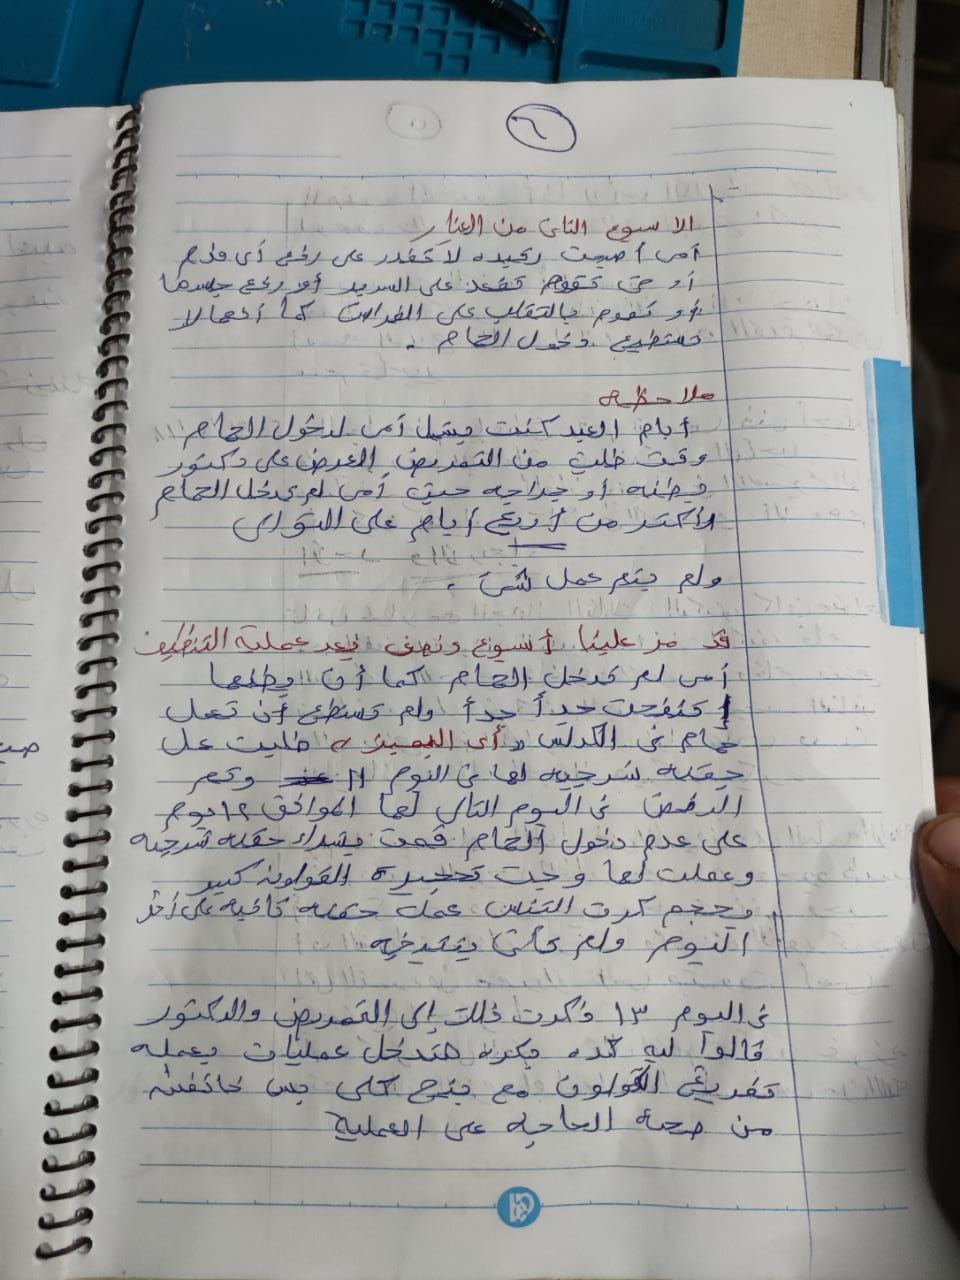 ٦
الاسبوع الثانى من العناير
أمى أصبحت رقيده لا تقدر على رفع أى قدم
أو حتى تقوم تقعد على السرير أو رفع جسدها
أو تقوم بالتقلب على الفراش كما أنها لا
تستطيع دخول الحمام .
ملاحظه
أيام العيد كنت بشيل أمى لدخول الحمام
وقت طلب من التمريض العرض على دكتور
وطنه أو جراحه حيث أمى لم تدخل الحمام
لأكثر من أربع أيام على التوالى
ولم يتم عمل شئ .
قد مر علينا أسبوع ونصف بعد عملية التنظيف
أمى لم تدخل الحمام كما أن بطنها
إنتفخت جداً جداً ولم تستطع أن تعمل
حمام فى الكولس " أى البمبرز " طلبت عمل
حقنه شرجيه لها فى اليوم 11 وتم
الرفض فى اليوم التالى لها الموافق ١٢ يوم
على عدم دخول الحمام قمت بشراء حقنه شرجيه
وعملت لها وجبت تحجيرة القولون كبير
بحجم كرت التنس عملت حقنه تانيه على أخر
اليوم ولم تأتى بنتيجه
فى اليوم ١٣ ذكرت ذلك إلى التمريض والدكتور
قالوا ليه كده بكره هتدخل عمليات بعمله
تفريغ القولون مع بنج كلى بس خائفين
من صحة الحاجه على العملية